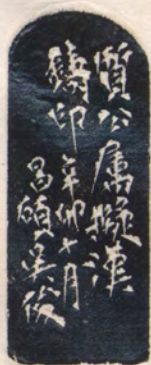 質公屬擬漢
鑄印辛卯十月
昌碩吳俊